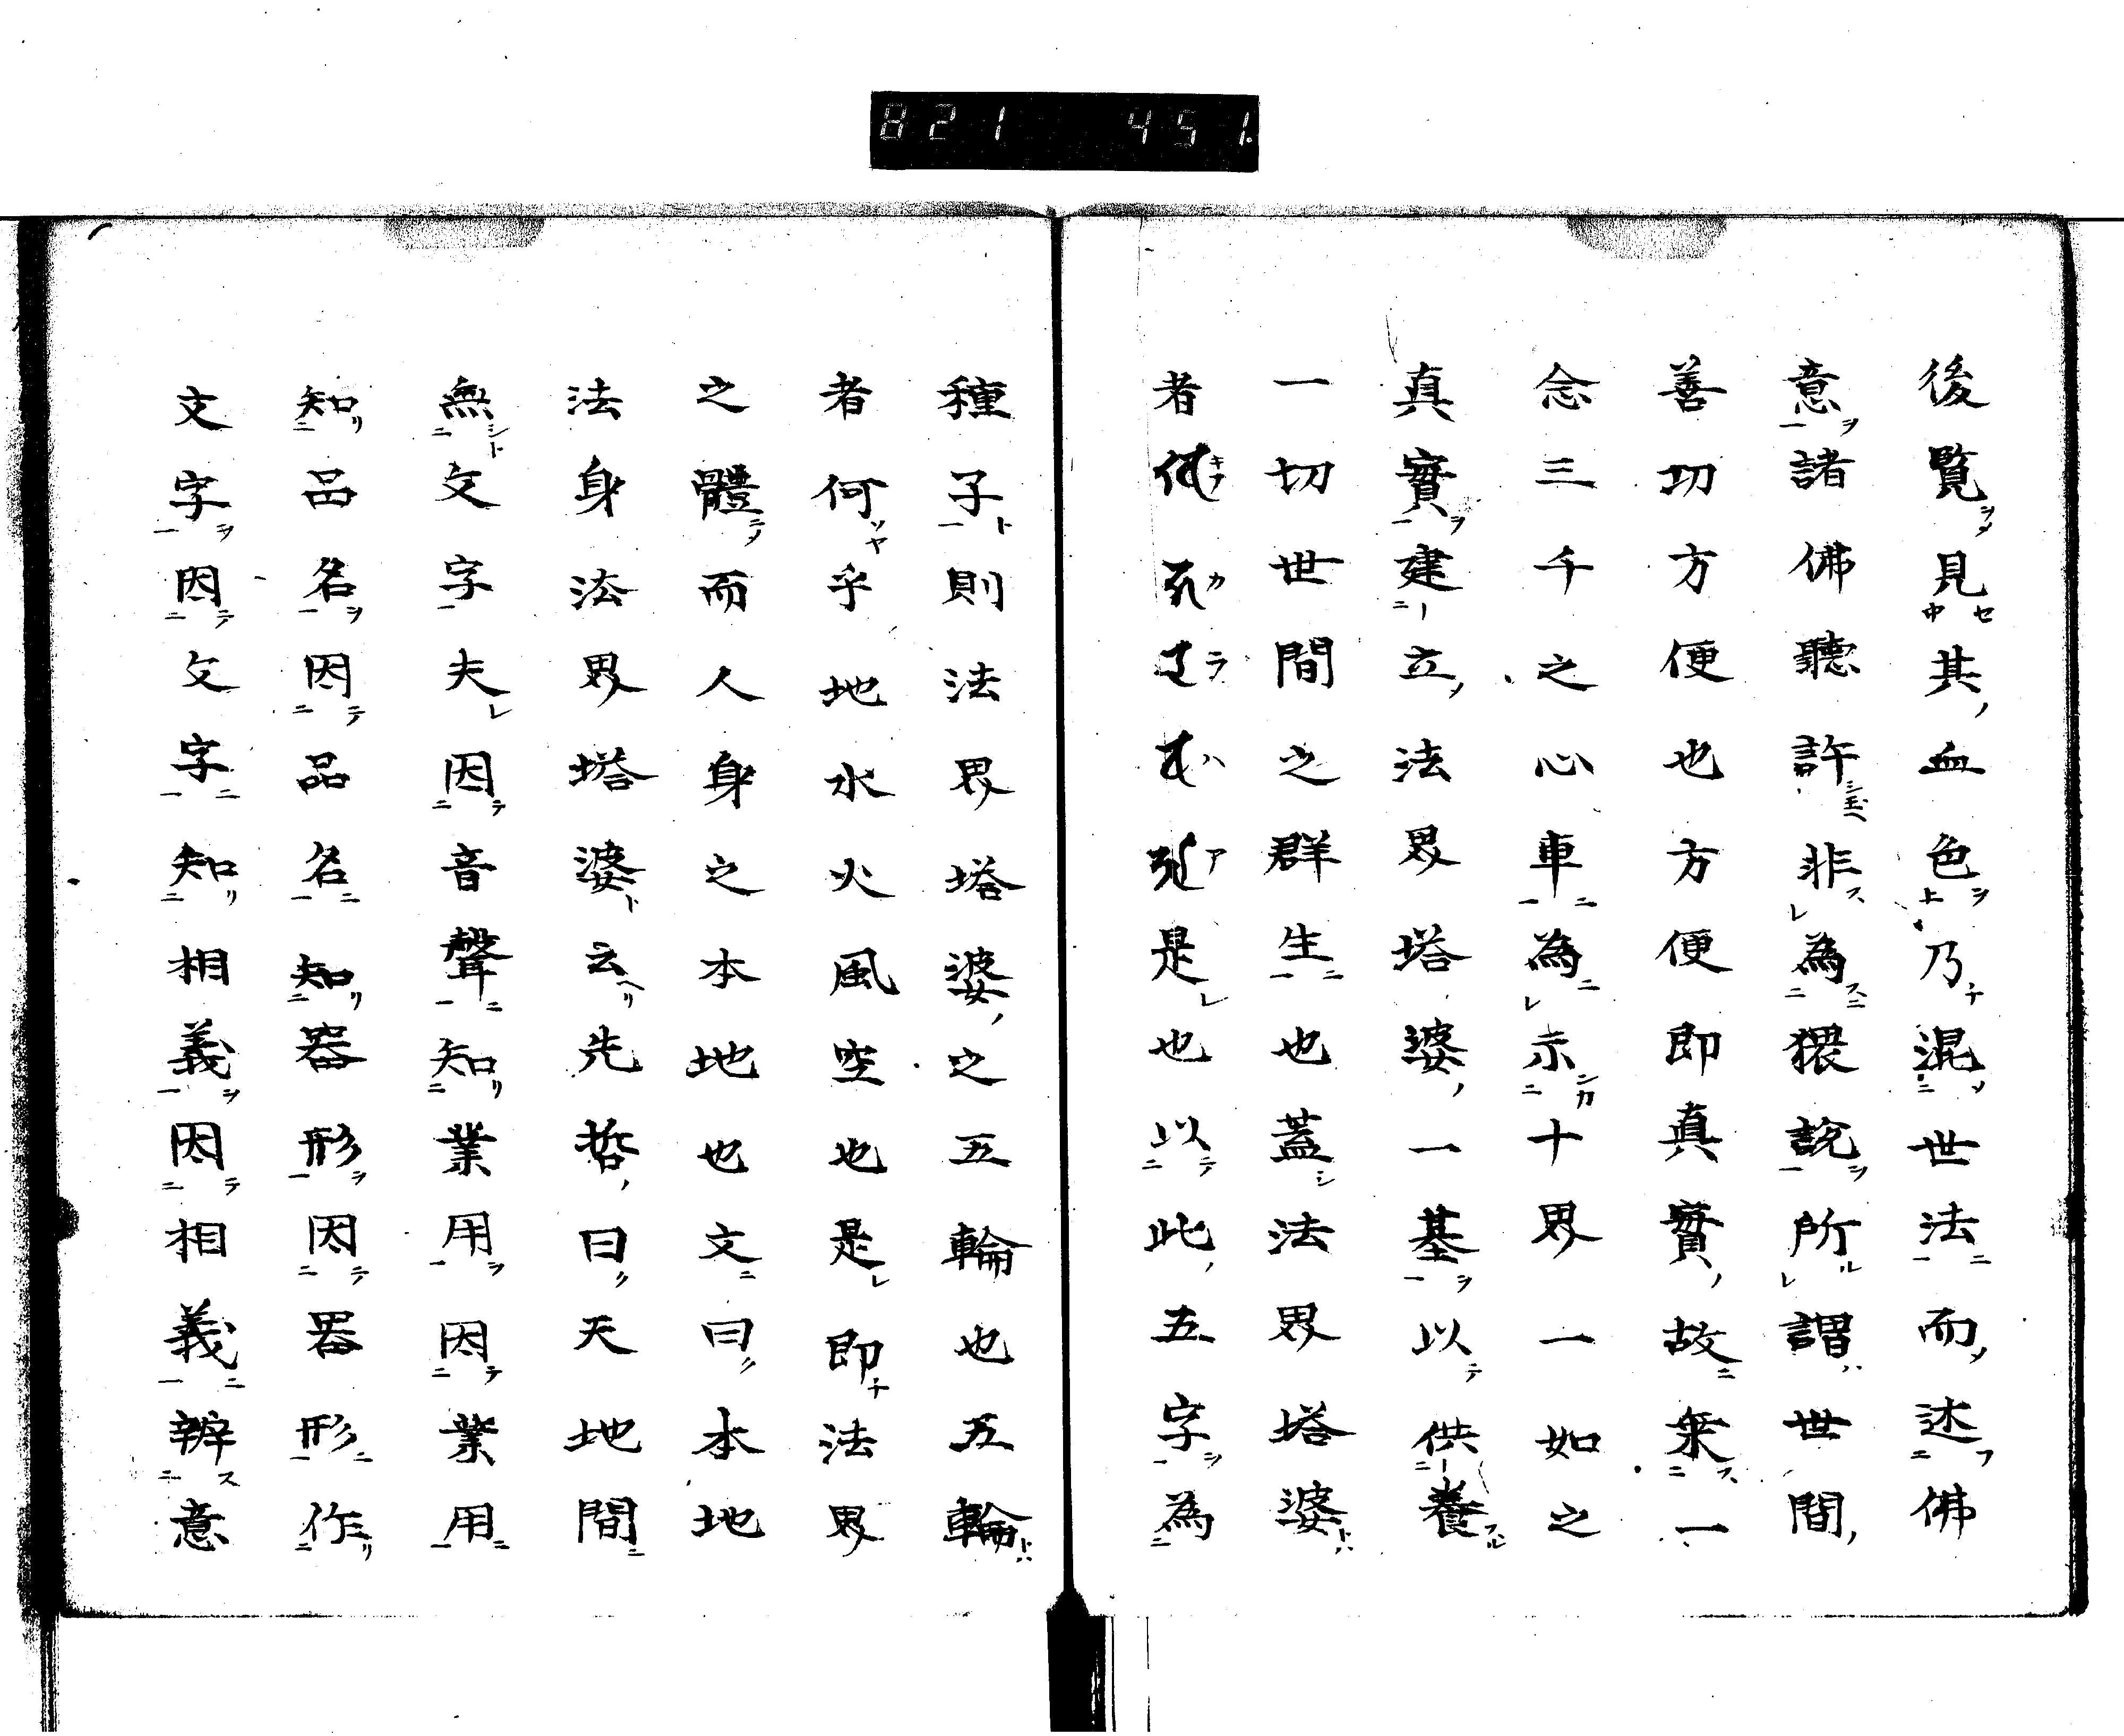 821 451
後覧見其血色乃混世法而述佛
意諸佛聽許非為猥説所謂世間
善功方便也方便即真實故乗一
念三千之心車為示十界一如之
真實建立法界塔婆一基以供養
一切世間之群生也蓋法界塔婆
者キャカラハア是也以此五字為
種子則法界塔婆之五輪也五輪
者何乎地水火風空也是即法界
之體而人身之本地也文曰本地
法身法界塔婆云先哲曰天地間
無文字夫因音聲知業用因業用
知品名因品名知器形因器形作
文字因文字知相義因相義辨意